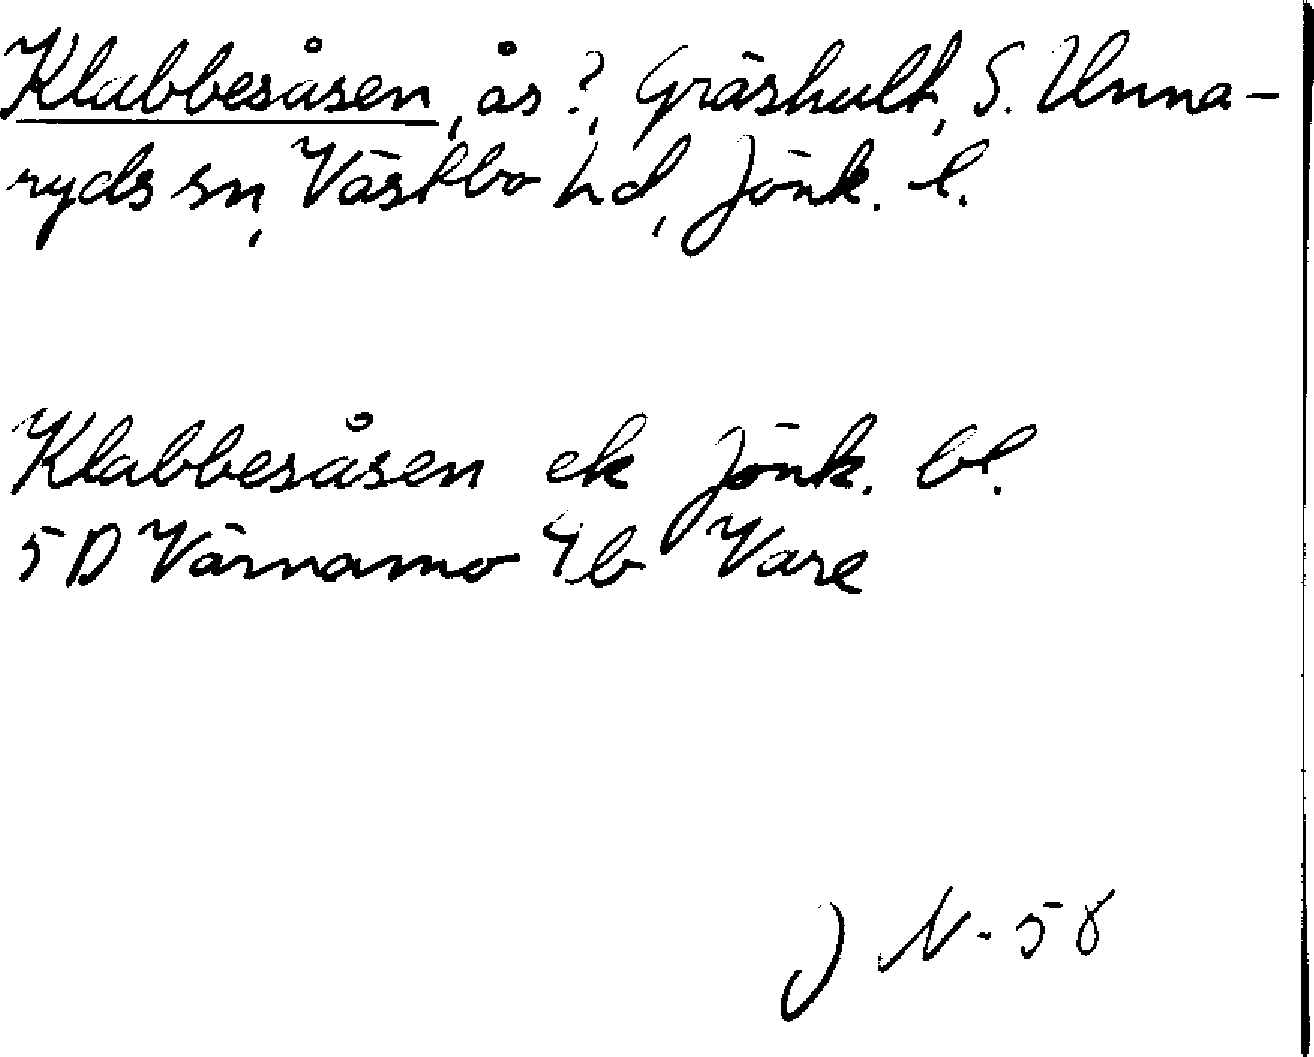 Klabbesåsen, ås?, Gräshult, S. Unna-
ryds sn, Västbo hd, Jönk. l.
Klabbesåsen ek Jönk. bl.
5D Värnamo 4b Vare
J N-58